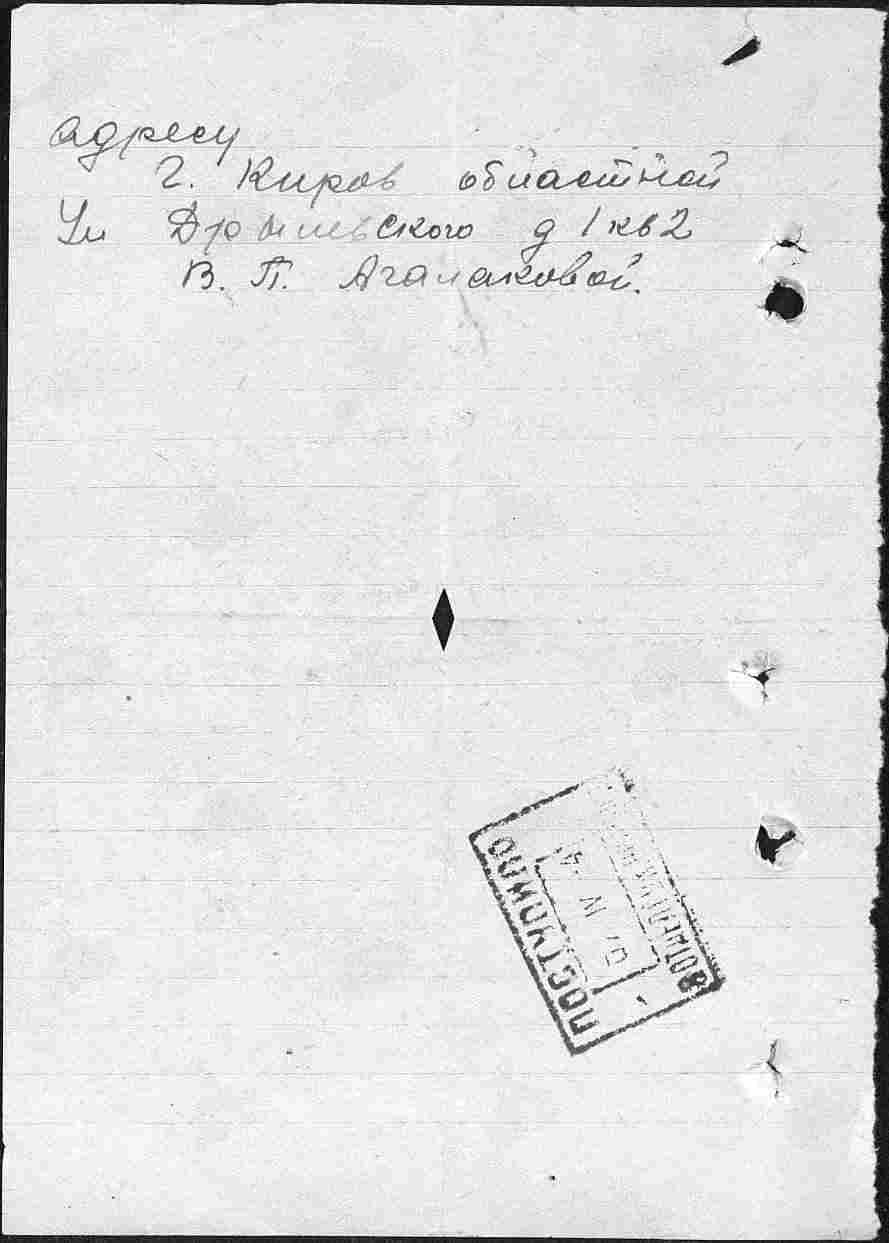 адресу
г. Киров областной
Ул Дрылевского д 1 кв 2
В. П. Агалаковой.
ПОСТУПИЛО
IV